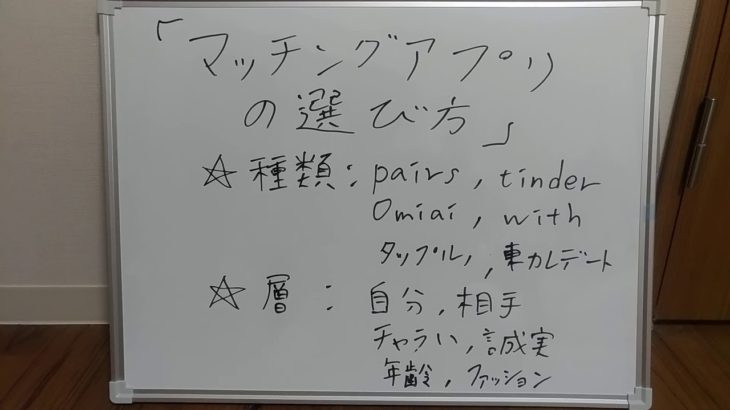 「マッチングアプリ
の選び方」
☆種類:pairs, tinder
Omiai, with
タップル, 東カレデート
☆層:自分, 相手
チャラい, 誠実
年齢, ファッション